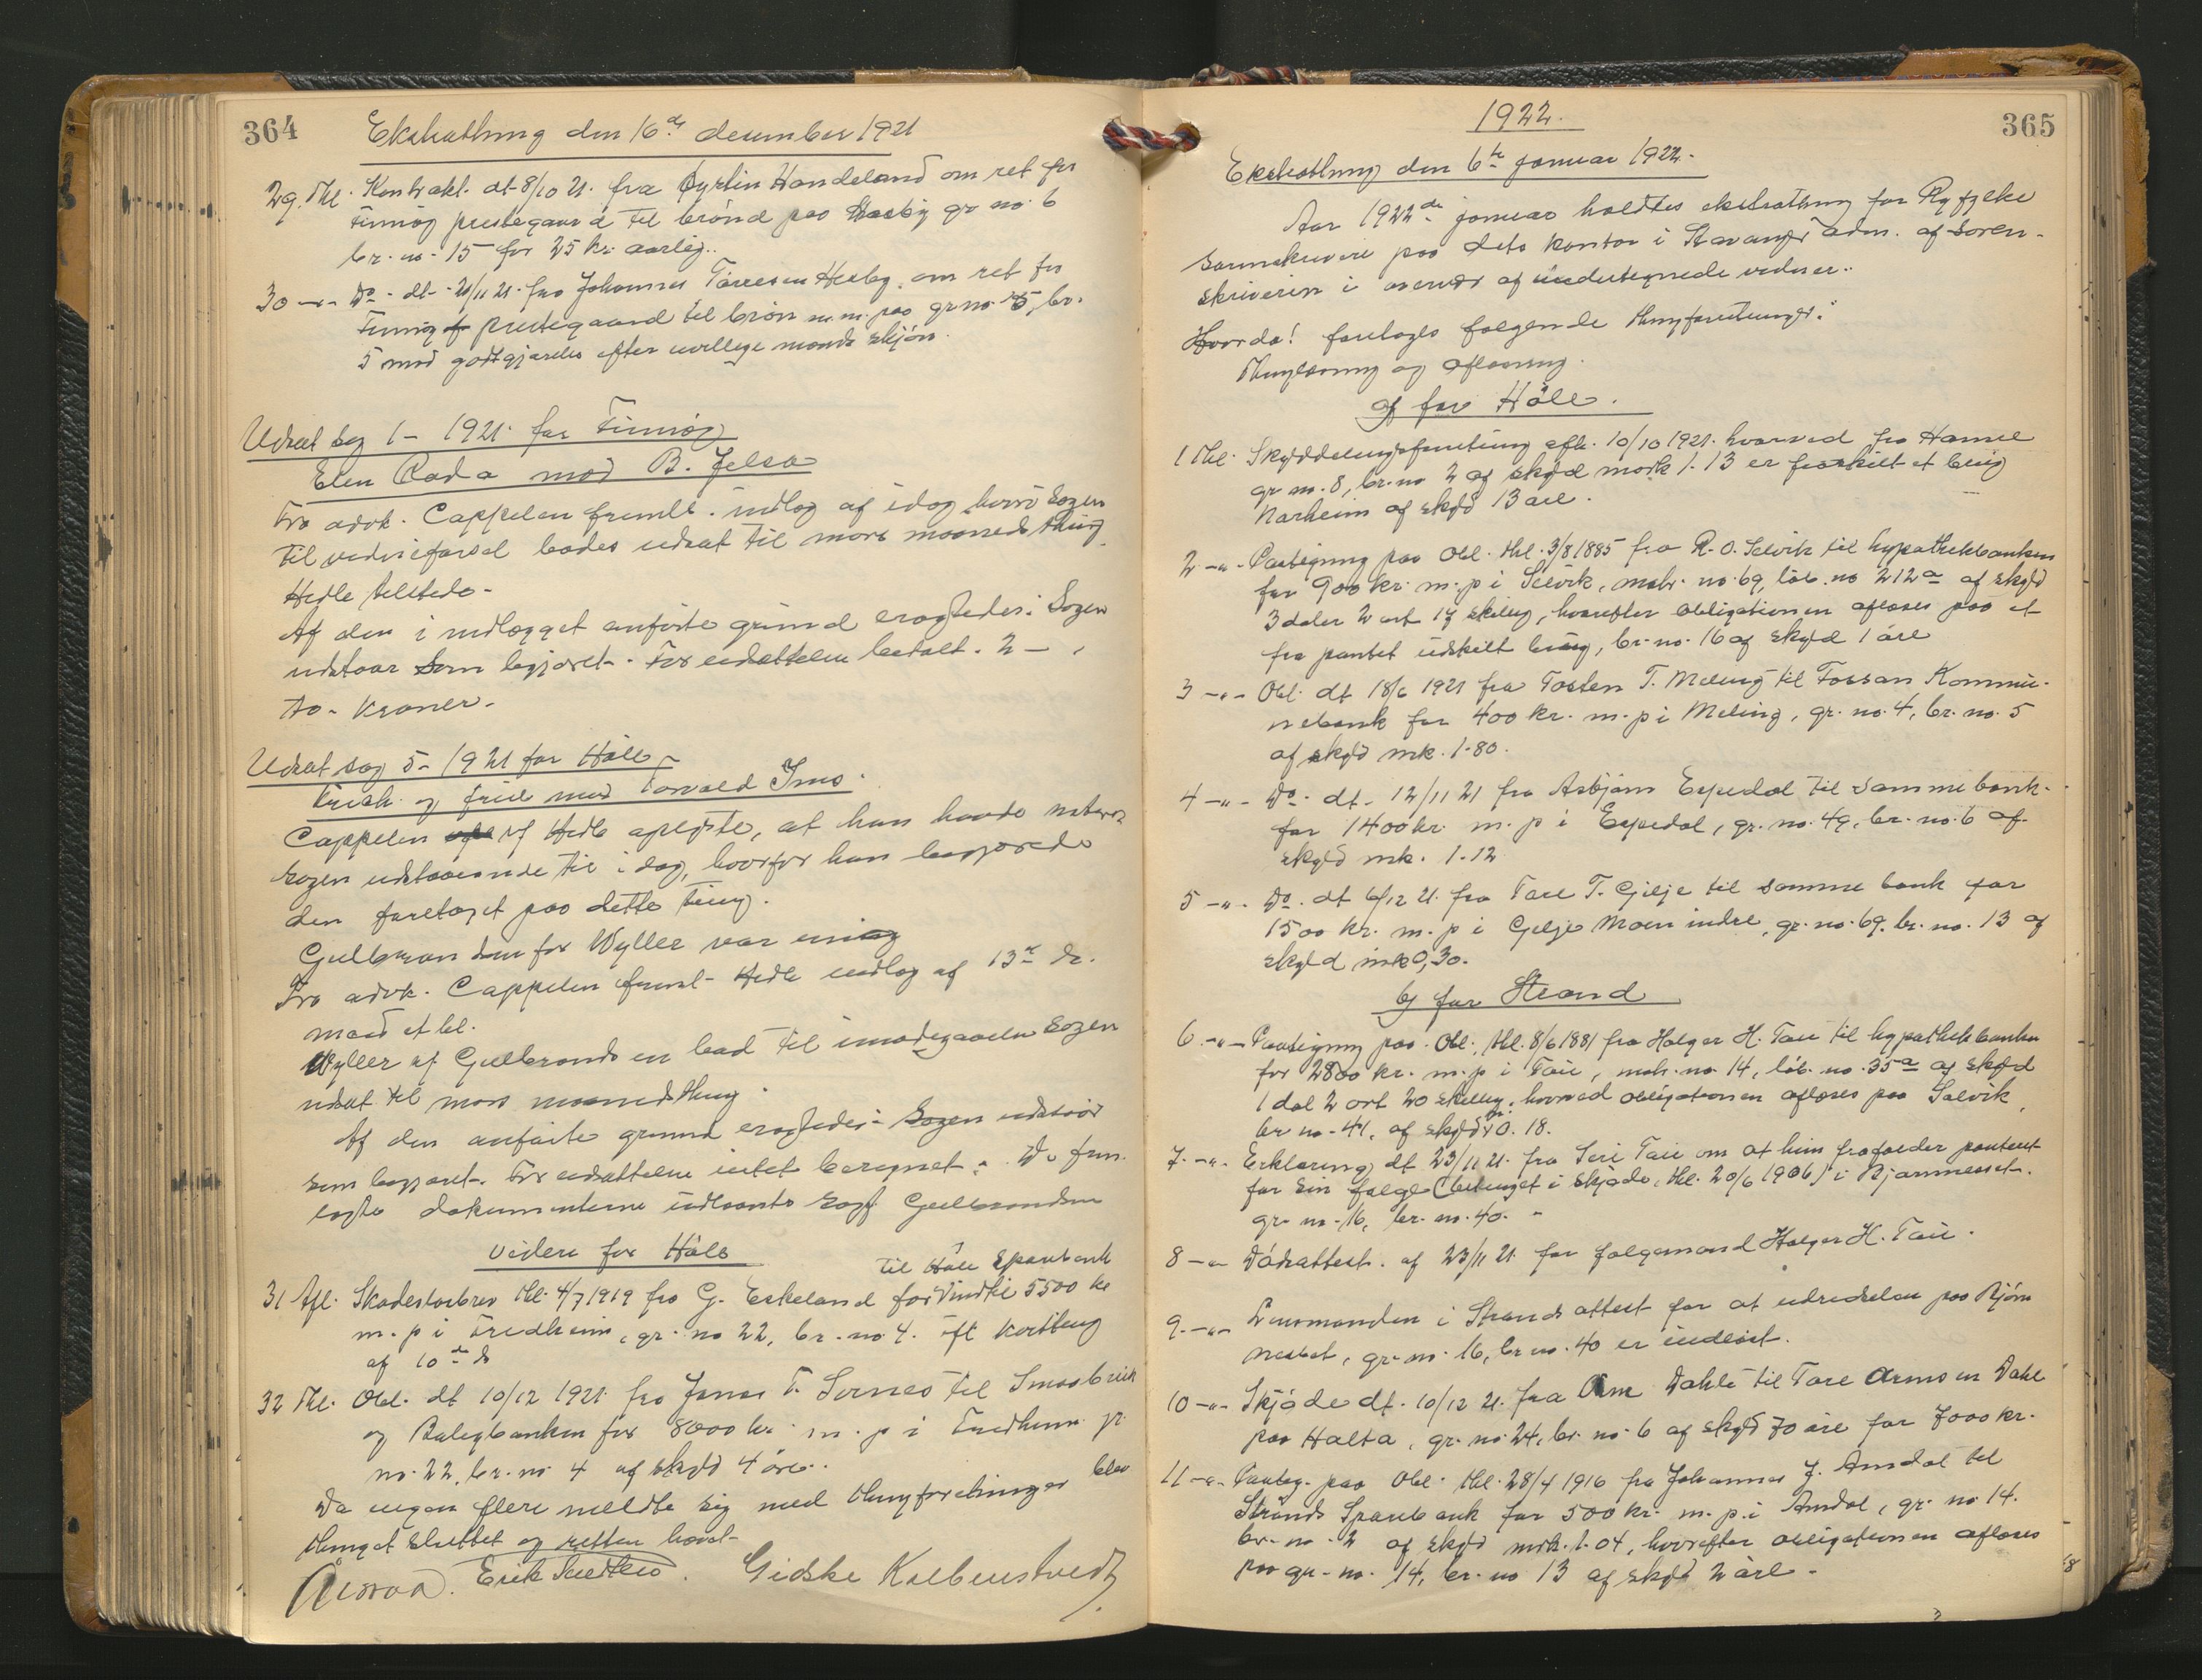 364
Ekstrathing den 16de desember 1921
29. Thl. Kontrakt. dt 8/10 21. fra Gyrtin Handeland om ret for
Finnøy prestegaard til brønd paa Hæsby gr no. 6
br. no. 15 for 25 kr. aarlig.
30 -"- Do. dt. 21/11 21. fra Johannes Tørresen Hesby. om ret for
Finnøy prestegaard til brøn m. m. paa gr no. 5, br.
5 mod godtgjørelse efter uvillige mænds skjøn.
Udsat sag 1 - 1921. for Finnøy
Elen Rada mod B. Jelsa
Fra advk. Cappelen freml. indlæg af idag hvori sagen
til vidneførsel bades udsat til mars maaneds thing.
Hedle tilstede.
Af den i indlægget anførte grund eragtedes: Sagen
udstaar som begjæret. For udsættelsen betalt. 2 -
to - kroner.
Udsat sag 5 - 1921 for Høle
Cappelen vf Hedle oplyste, at han havde
sagen udstaaende til i dag, hvorfor han begjærede
den foretaget paa dette ting.
Gulbransen for Wyller var enig
Fra advk. Cappelen freml. Hedle indlæg af 13de ds.
med et bl.
Wyller vf Gulbrandsen bad til imødegaaelse sagen
udsat til mars maanedsthing.
Af den anførte grund eragtedes: Sagen udstaar
som begjæret. For udsættelsen intet beregnet. De frem
lagte dokumenterne udlaante sagf. Gulbrandsen
videre for Høle
til Høle Sparebank
31 Afl. Skadesløsbrev thl. 4/7 1919 fra G. Eskeland for indtil 5500 kr
m. p i Fredheim, gr. no 22, br. no 4. ift kvittering
af 10de ds
32 Thl. Obl. dt 10/12 1921. fra Jonas T. Sernes til Smaabruk
og Boligbanken for 8000 kr. m. p i Fredheim gr.
no. 22, br. no 4 af skyld 4 øre.
Da ingen flere meldte sig med thingforretninger blev
thinget sluttet og retten hævet.
Erik Sædtlew. Gidske Kolbenstvedt
365
1922.
Ekstrathing den 6te januar 1922.
Aar 1922 de januar holdtes ekstrathing for Ryfylke
sorenskriveri paa dets kontor i Stavanger adm. af soren-
skriveren i overvær af undertegnede vidner.
Hvorda! foretages følgende thingforretninger:
Thinglæsning og aflæsning.
a) for Høle.
1 Thl. Skylddelingsforretning afh. 10/10 1921. hvorved fra Hamre
gr no. 8, br. no 2 af skyld mark 1. 13 er fraskilt et brug
Narheim af skyld 13 øre.
2 -"- Paategning paa obl. thl. 3/8 1885 fra R. O. Selvik til hypothekbanken
for 900 kr. m. p i Selvik, matr. no. 69, løb. no 212a af skyld
3 daler 2 ort 17 skilling, hvorefter obligationen aflæses paa et
fra pantet udskilt brug, br. no. 16 af skyld 1 øre
3 -"- Obl. dt 18/6 1921 fra Tosten T. Meling til Fossan Kommu-
nebank for 400 kr. m. p i Meling, gr. no. 4, br. no. 5
af skyld mk. 1.80.
4 -"- Do. dt. 12/11 21 fra Asbjørn Espedal til samme bank.
for 1400 kr. m. p i Espedal, gr. no. 49, br. no. 6 af
skyld mk. 1.12
5 -"- Do. dt 6/12 21. fra Tore T. Gilje til samme bank for
1500 kr. m. p i Gilje Moen indre, gr. no. 69. br. no. 13 af
skyld mk 0,30.
b) for Strand
6 -"- Paategning paa. Obl. thl. 8/6 1881 fra Holger H. Tau til hypothekbanken
for 2800 kr. m. p i Tau, matr. no. 14, løb. no. 35a af skyld
1 dal 2 ort 20 skilling, hvorved obligationen aflæses paa Solvik,
br no. 44, af skyld m 0. 18.
7. -"- Erklæring dt 23/11 21. fra Siri Tau om at hun frafalder panteret
for sin følge (betinget i skjøde, thl. 20/6 1906) i Bjørnnesset.
gr. no. 16, br. no. 40.
8 -"- Dødsattest. af 23/11 21. for følgemand Holger H. Tau.
9. -"- Lensmanden i Strands attest for at udredselen paa Bjørn
nesset, gr. no. 16, br no. 40 er indløst.
10 -"- Skjøde dt. 10/12 21. fra Arne Dahle til Tore Arnesen Dahl
paa Halta, gr. no. 24, br. no. 6 af skyld 70 øre for 7000 kr.
11 -"- Paateg. paa Obl. thl. 28/4 1916 fra Johannes J. Amdal til
Strands Sparebank for 500 kr. m. p. i Amdal, gr. no 14.
br. no. 2 af skyld mrk. 1.04, hvorefter obligationen aflæses
paa gr. no. 14, br. no 13 af skyld 2 øre.